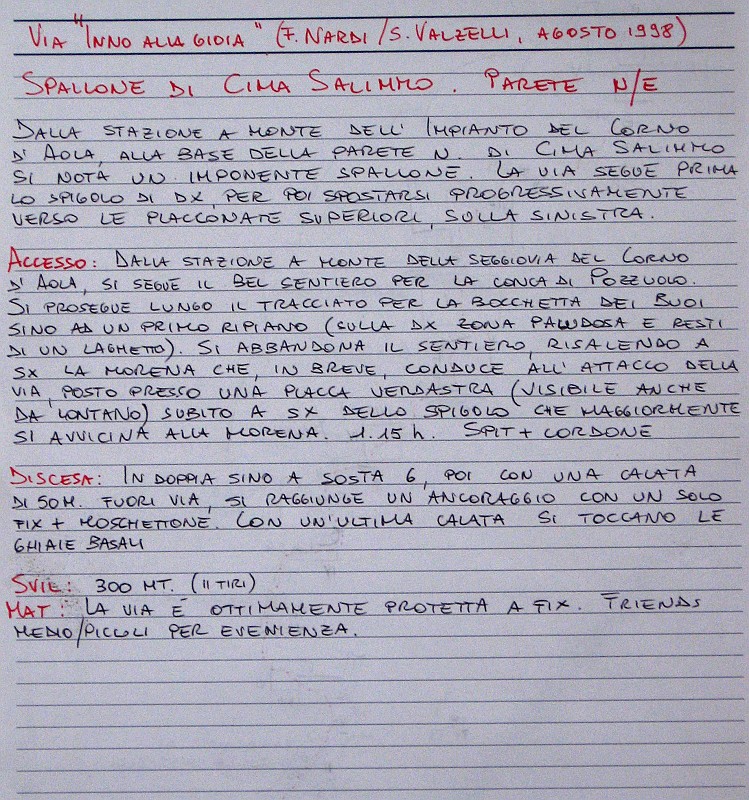 VIA "INNO ALLA GIOIA" (F. NARDI / S. VALZELLI, AGOSTO 1998)
SPALLONE DI CIMA SALIMMO. PARETE N/E
DALLA STAZIONE A MONTE DELL' IMPIANTO DEL CORNO
D' AOLA, ALLA BASE DELLA PARETE N. DI CIMA SALIMMO
SI NOTA UN IMPONENTE SPALLONE. LA VIA SEGUE PRIMA
LO SPIGOLO DI DX, PER POI SPOSTARSI PROGRESSIVAMENTE
VERSO LE PLACCONATE SUPERIORI, SULLA SINISTRA.
ACCESSO: DALLA STAZIONE A MONTE DELLA SEGGIOVIA DEL CORNO
D' AOLA, SI SEGUE IL BEL SENTIERO PER LA CONCA DI POZZUOLO.
SI PROSEGUE LUNGO IL TRACCIATO PER LA BOCCHETTA DEI BUOI
SINO AD UN PRIMO RIPIANO (SULLA DX ZONA PALUDOSA E RESTI
DI UN LAGHETTO). SI ABBANDONA IL SENTIERO, RISALENDO A
SX LA MORENA CHE, IN BREVE, CONDUCE ALL' ATTACCO DELLA
VIA, POSTO PRESSO UNA PLACCA VERDASTRA (VISIBILE ANCHE
DA LONTANO) SUBITO A SX DELLO SPIGOLO CHE MAGGIORMENTE
SI AVVICINA ALLA MORENA. 1.15 h. SPIT + CORDONE
DISCESA: IN DOPPIA SINO A SOSTA 6, POI CON UNA CALATA
DI 50 M. FUORI VIA, SI RAGGIUNGE UN ANCORAGGIO CON UN SOLO
FIX + MOSCHETTONE. CON UN'ULTIMA CALATA SI TOCCANO LE
GHIAIE BASALI
SVIL: 300 MT. (11 TIRI)
MAT: LA VIA È OTTIMAMENTE PROTETTA A FIX. FRIENDS
MEDIO/PICCOLI PER EVENIENZA.